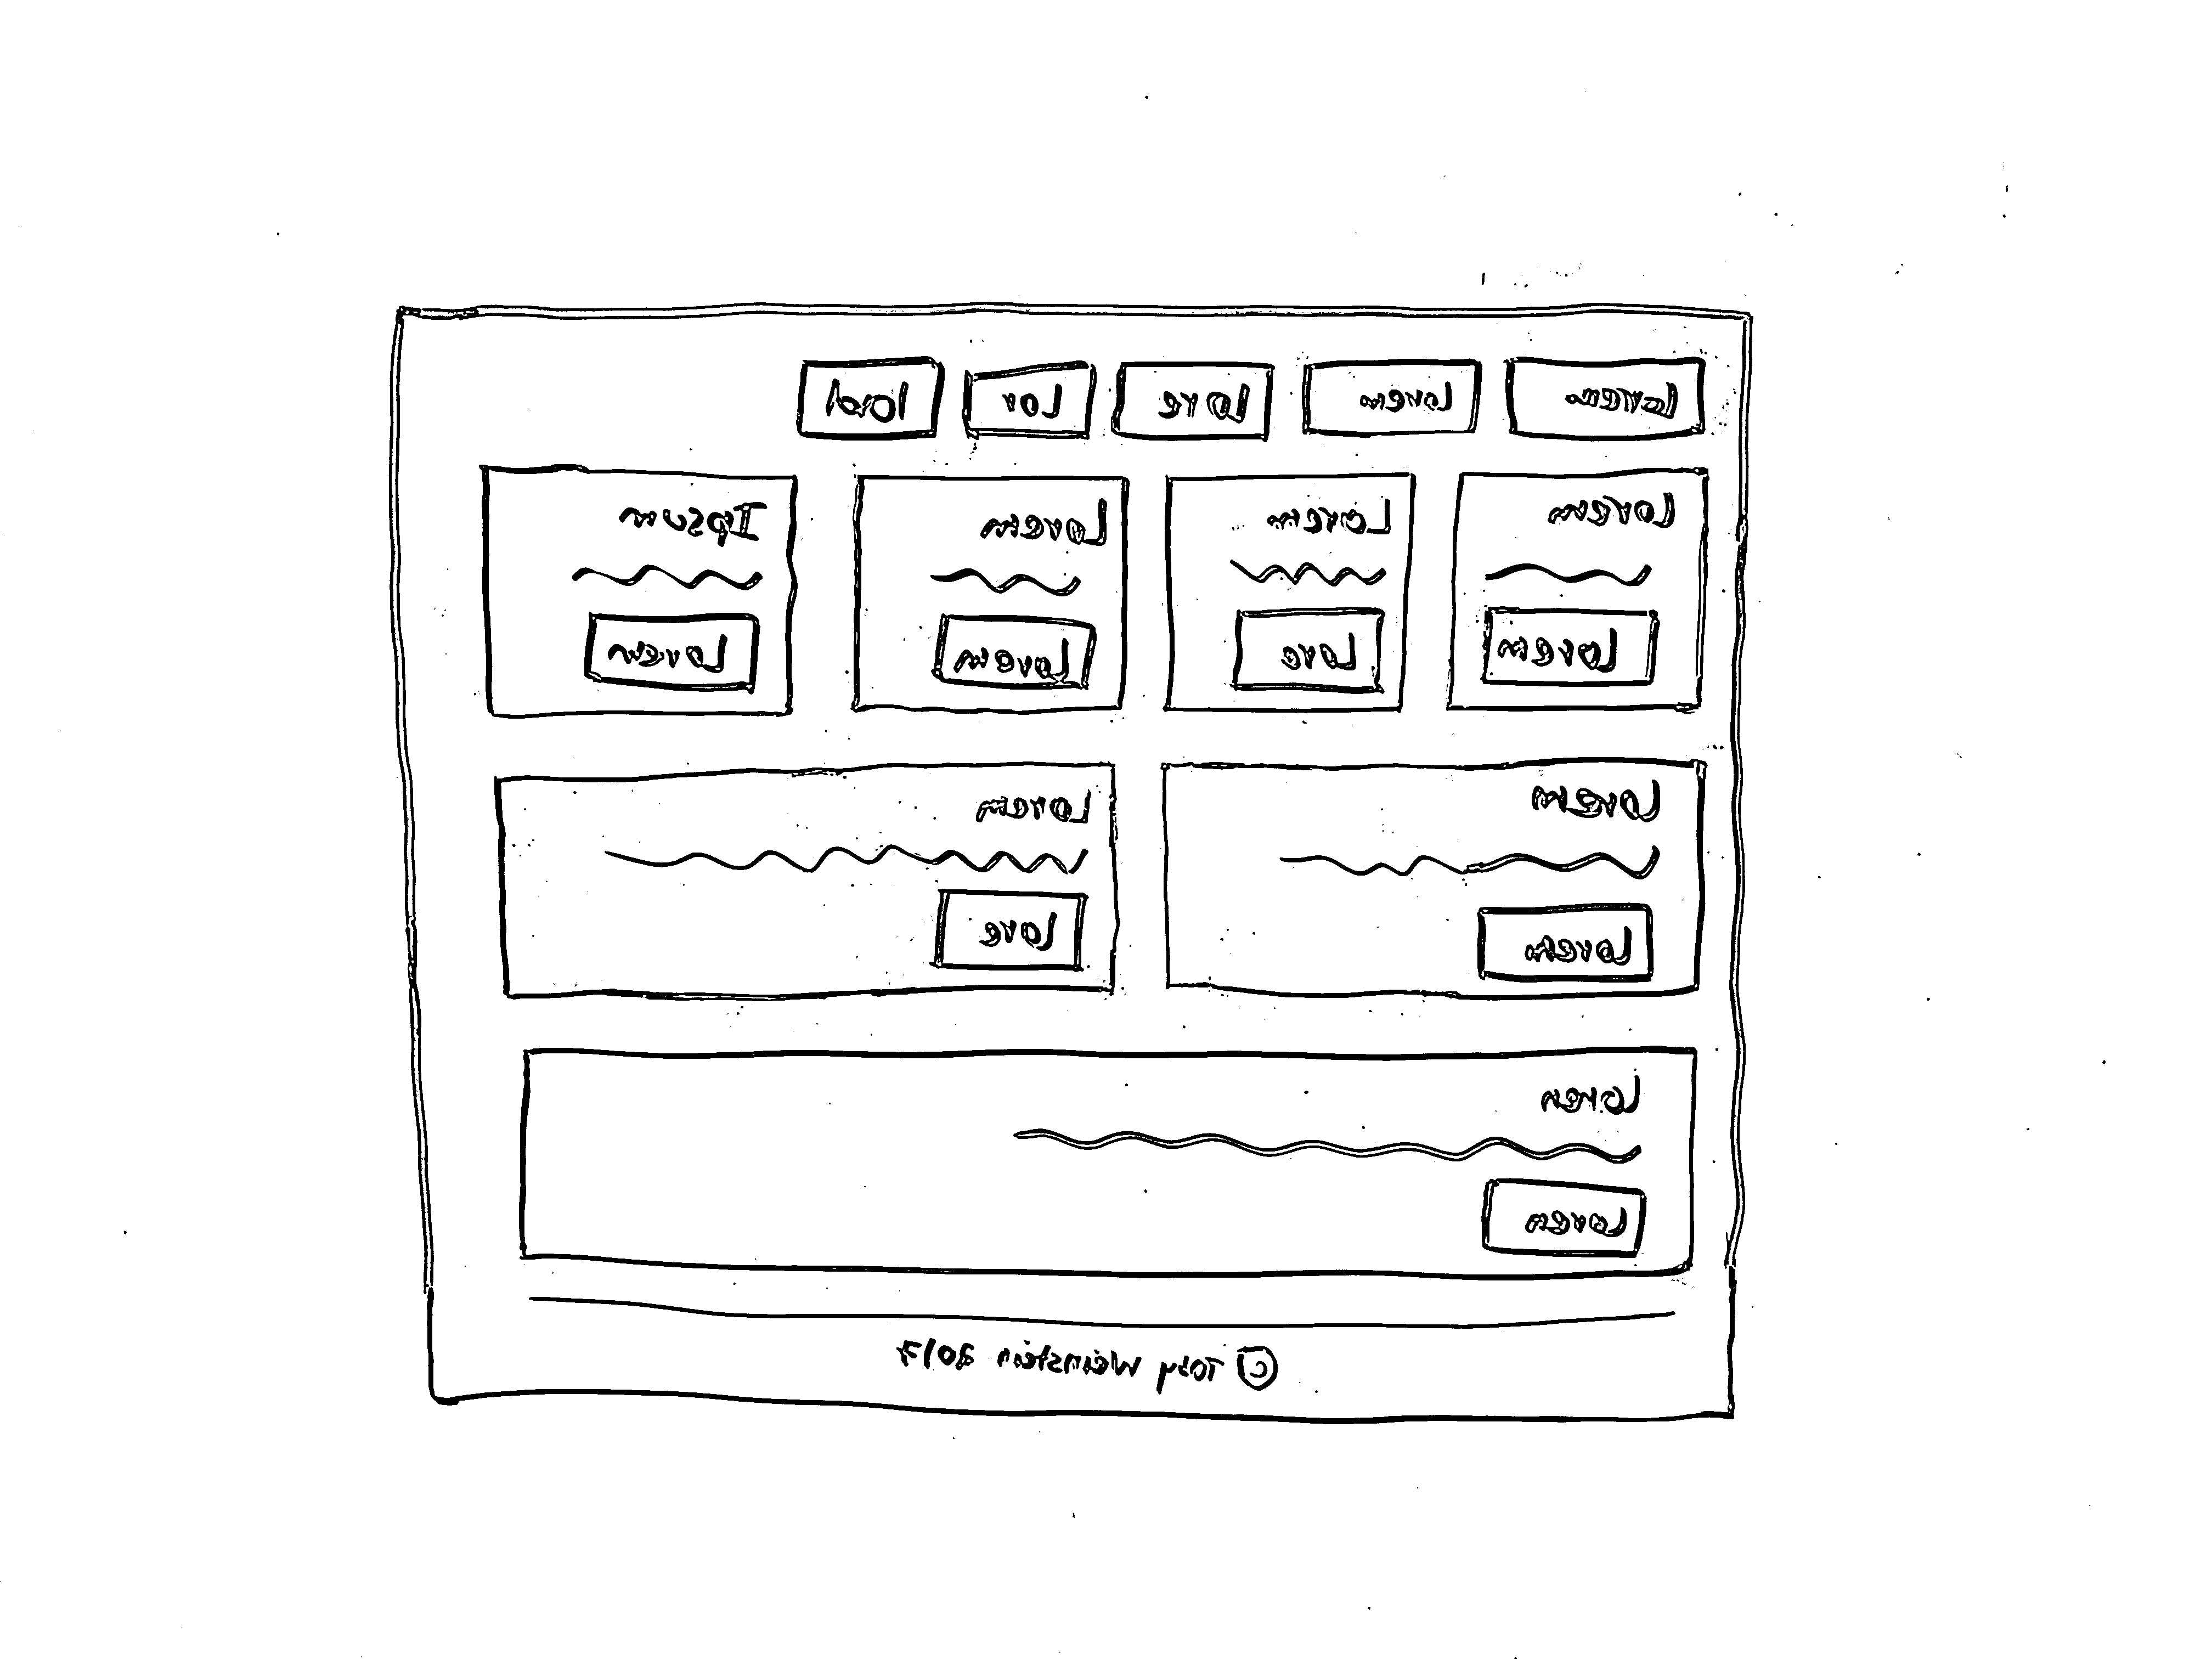 Lorem Lorem Lore Lor
Lorem Lorem Lorem Ipsum
Lorem Lore Lorem Lorem
Lorem Lorem
Lorem Lore
Loren
Loren
© Toby Weinstein 2017